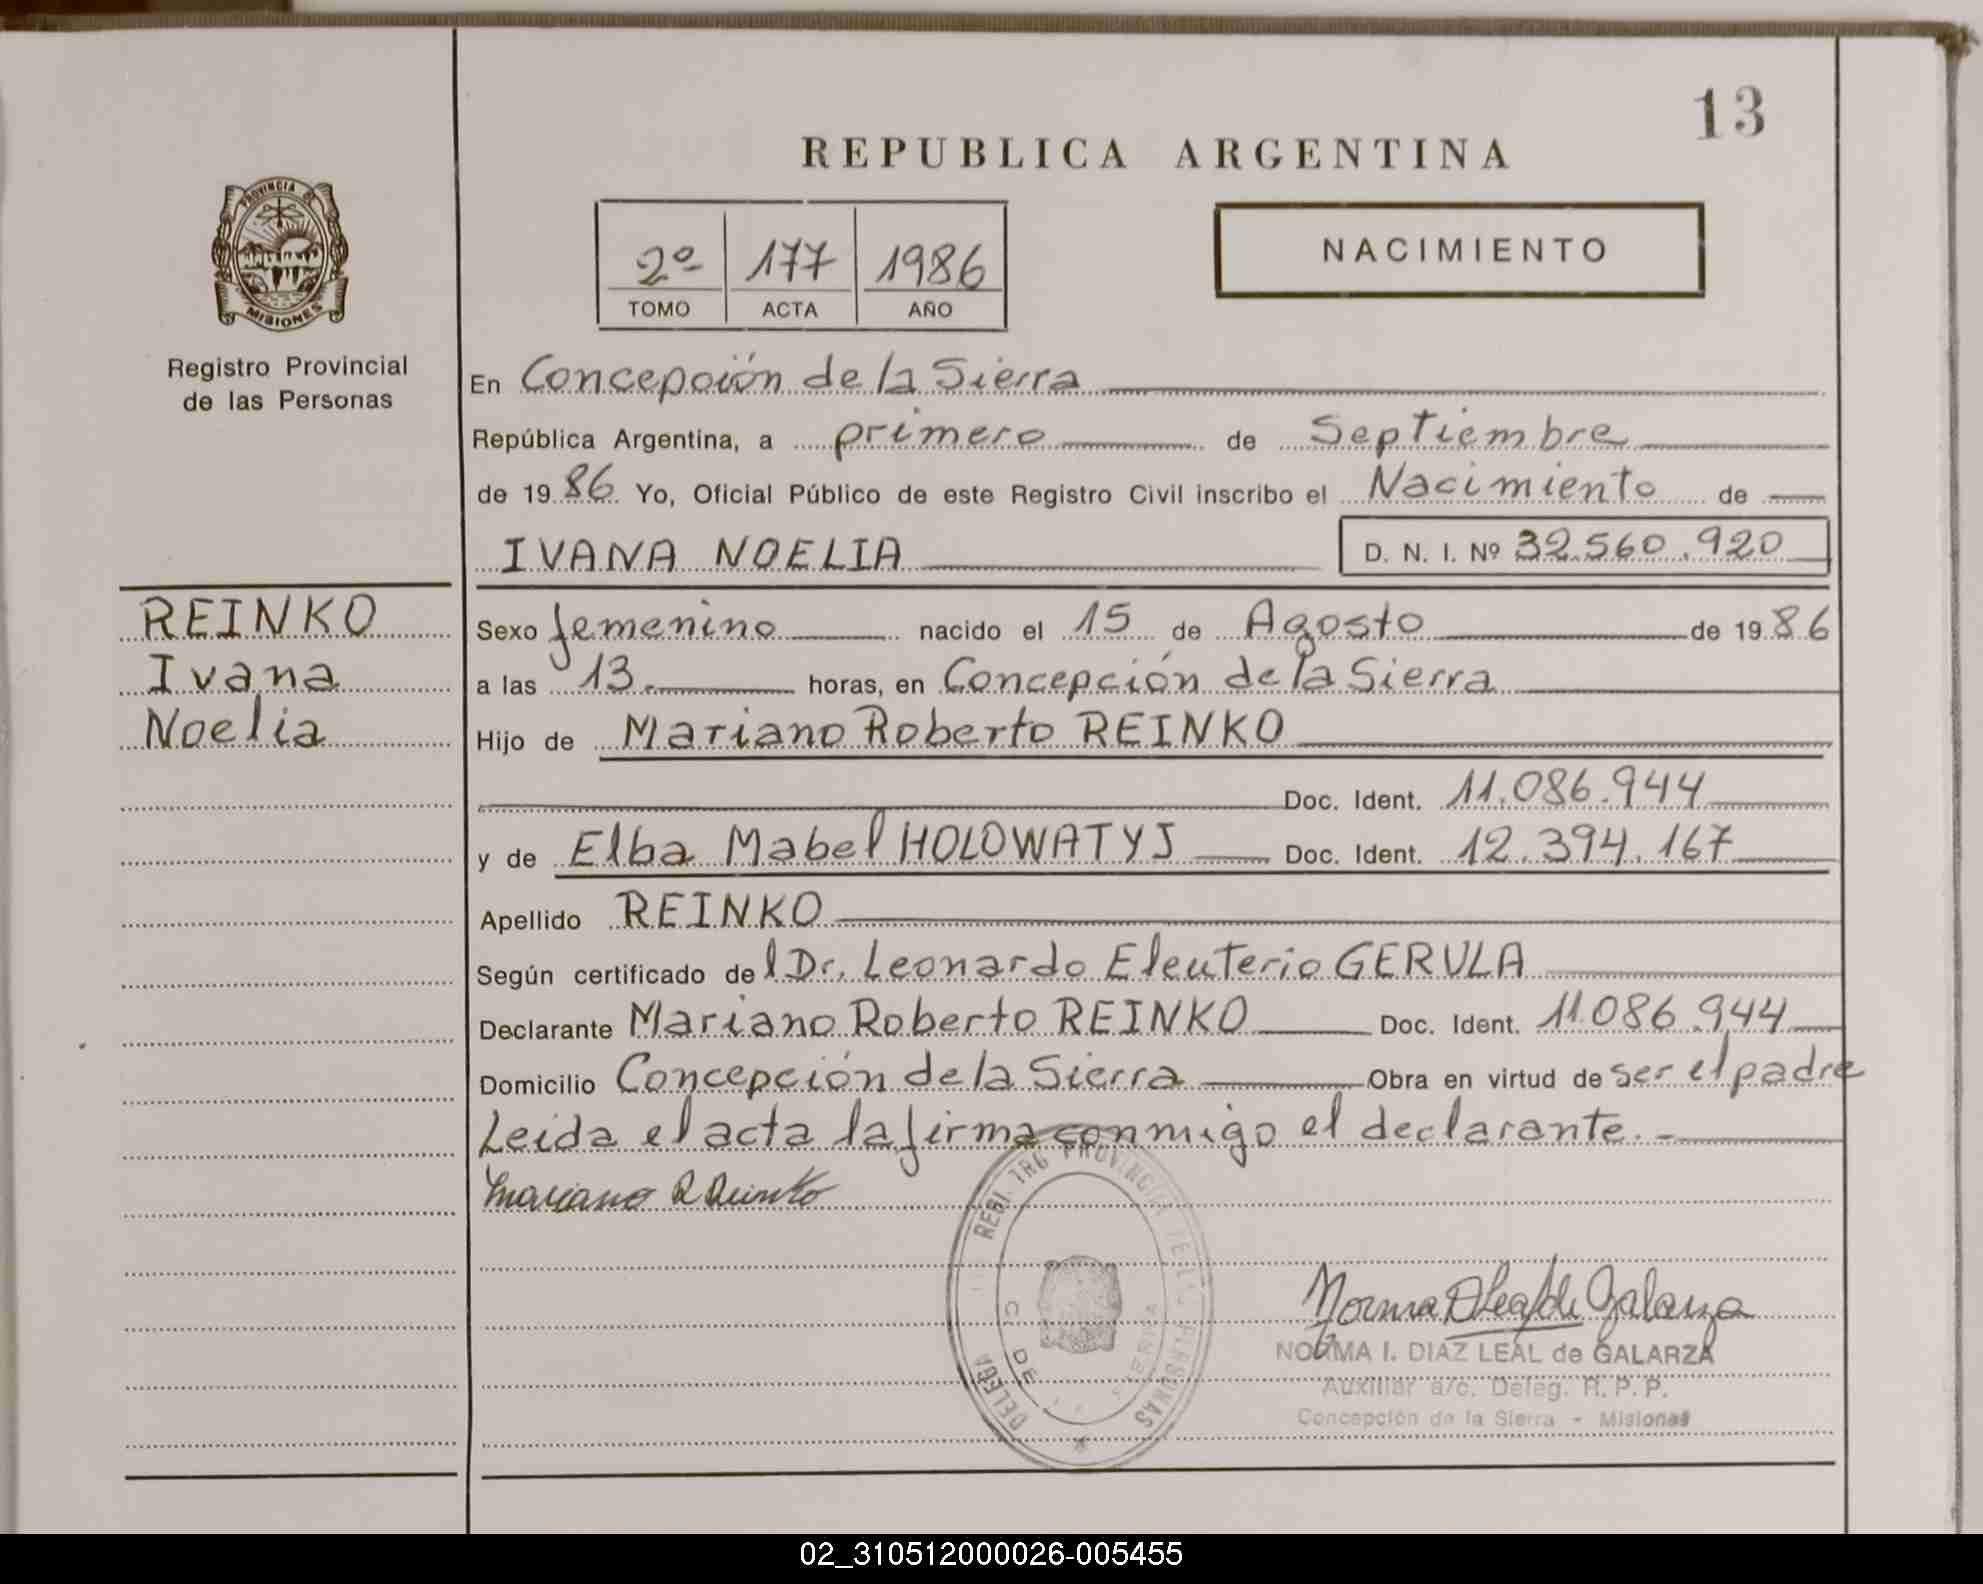 13
REPUBLICA ARGENTINA
PROVINCIA DE
MISIONES
2º 177 1986
TOMO ACTA AÑO
NACIMIENTO
Registro Provincial
de las Personas
En Concepción de la Sierra
República Argentina, a primero de Septiembre
de 1986 Yo, Oficial Público de este Registro Civil inscribo el Nacimiento de
IVANA NOELIA D. N. I. Nº 32.560.920
REINKO
Ivana
Noelia
Sexo femenino nacido el 15 de Agosto de 1986
a las 13. horas, en Concepción de la Sierra
Hijo de Mariano Roberto REINKO
Doc. Ident. 11.086.944
y de Elba Mabel HOLOWATYJ Doc. Ident. 12.394.167
Apellido REINKO
Según certificado del Dr. Leonardo Eleuterio GERULA
Declarante Mariano Roberto REINKO Doc. Ident. 11.086.944
Domicilio Concepción de la Sierra Obra en virtud de ser el padre
Leida el acta la firma conmigo el declarante.-
Mariano R Reinko
REGISTRO PROVINCIAL DE LAS PERSONAS
C. DE SIERRA
Norma DLeal de Galarza
NORMA I. DIAZ LEAL de GALARZA
Auxiliar a/c. Deleg. R. P. P.
Concepción de la Sierra - Misiones
02_310512000026-005455